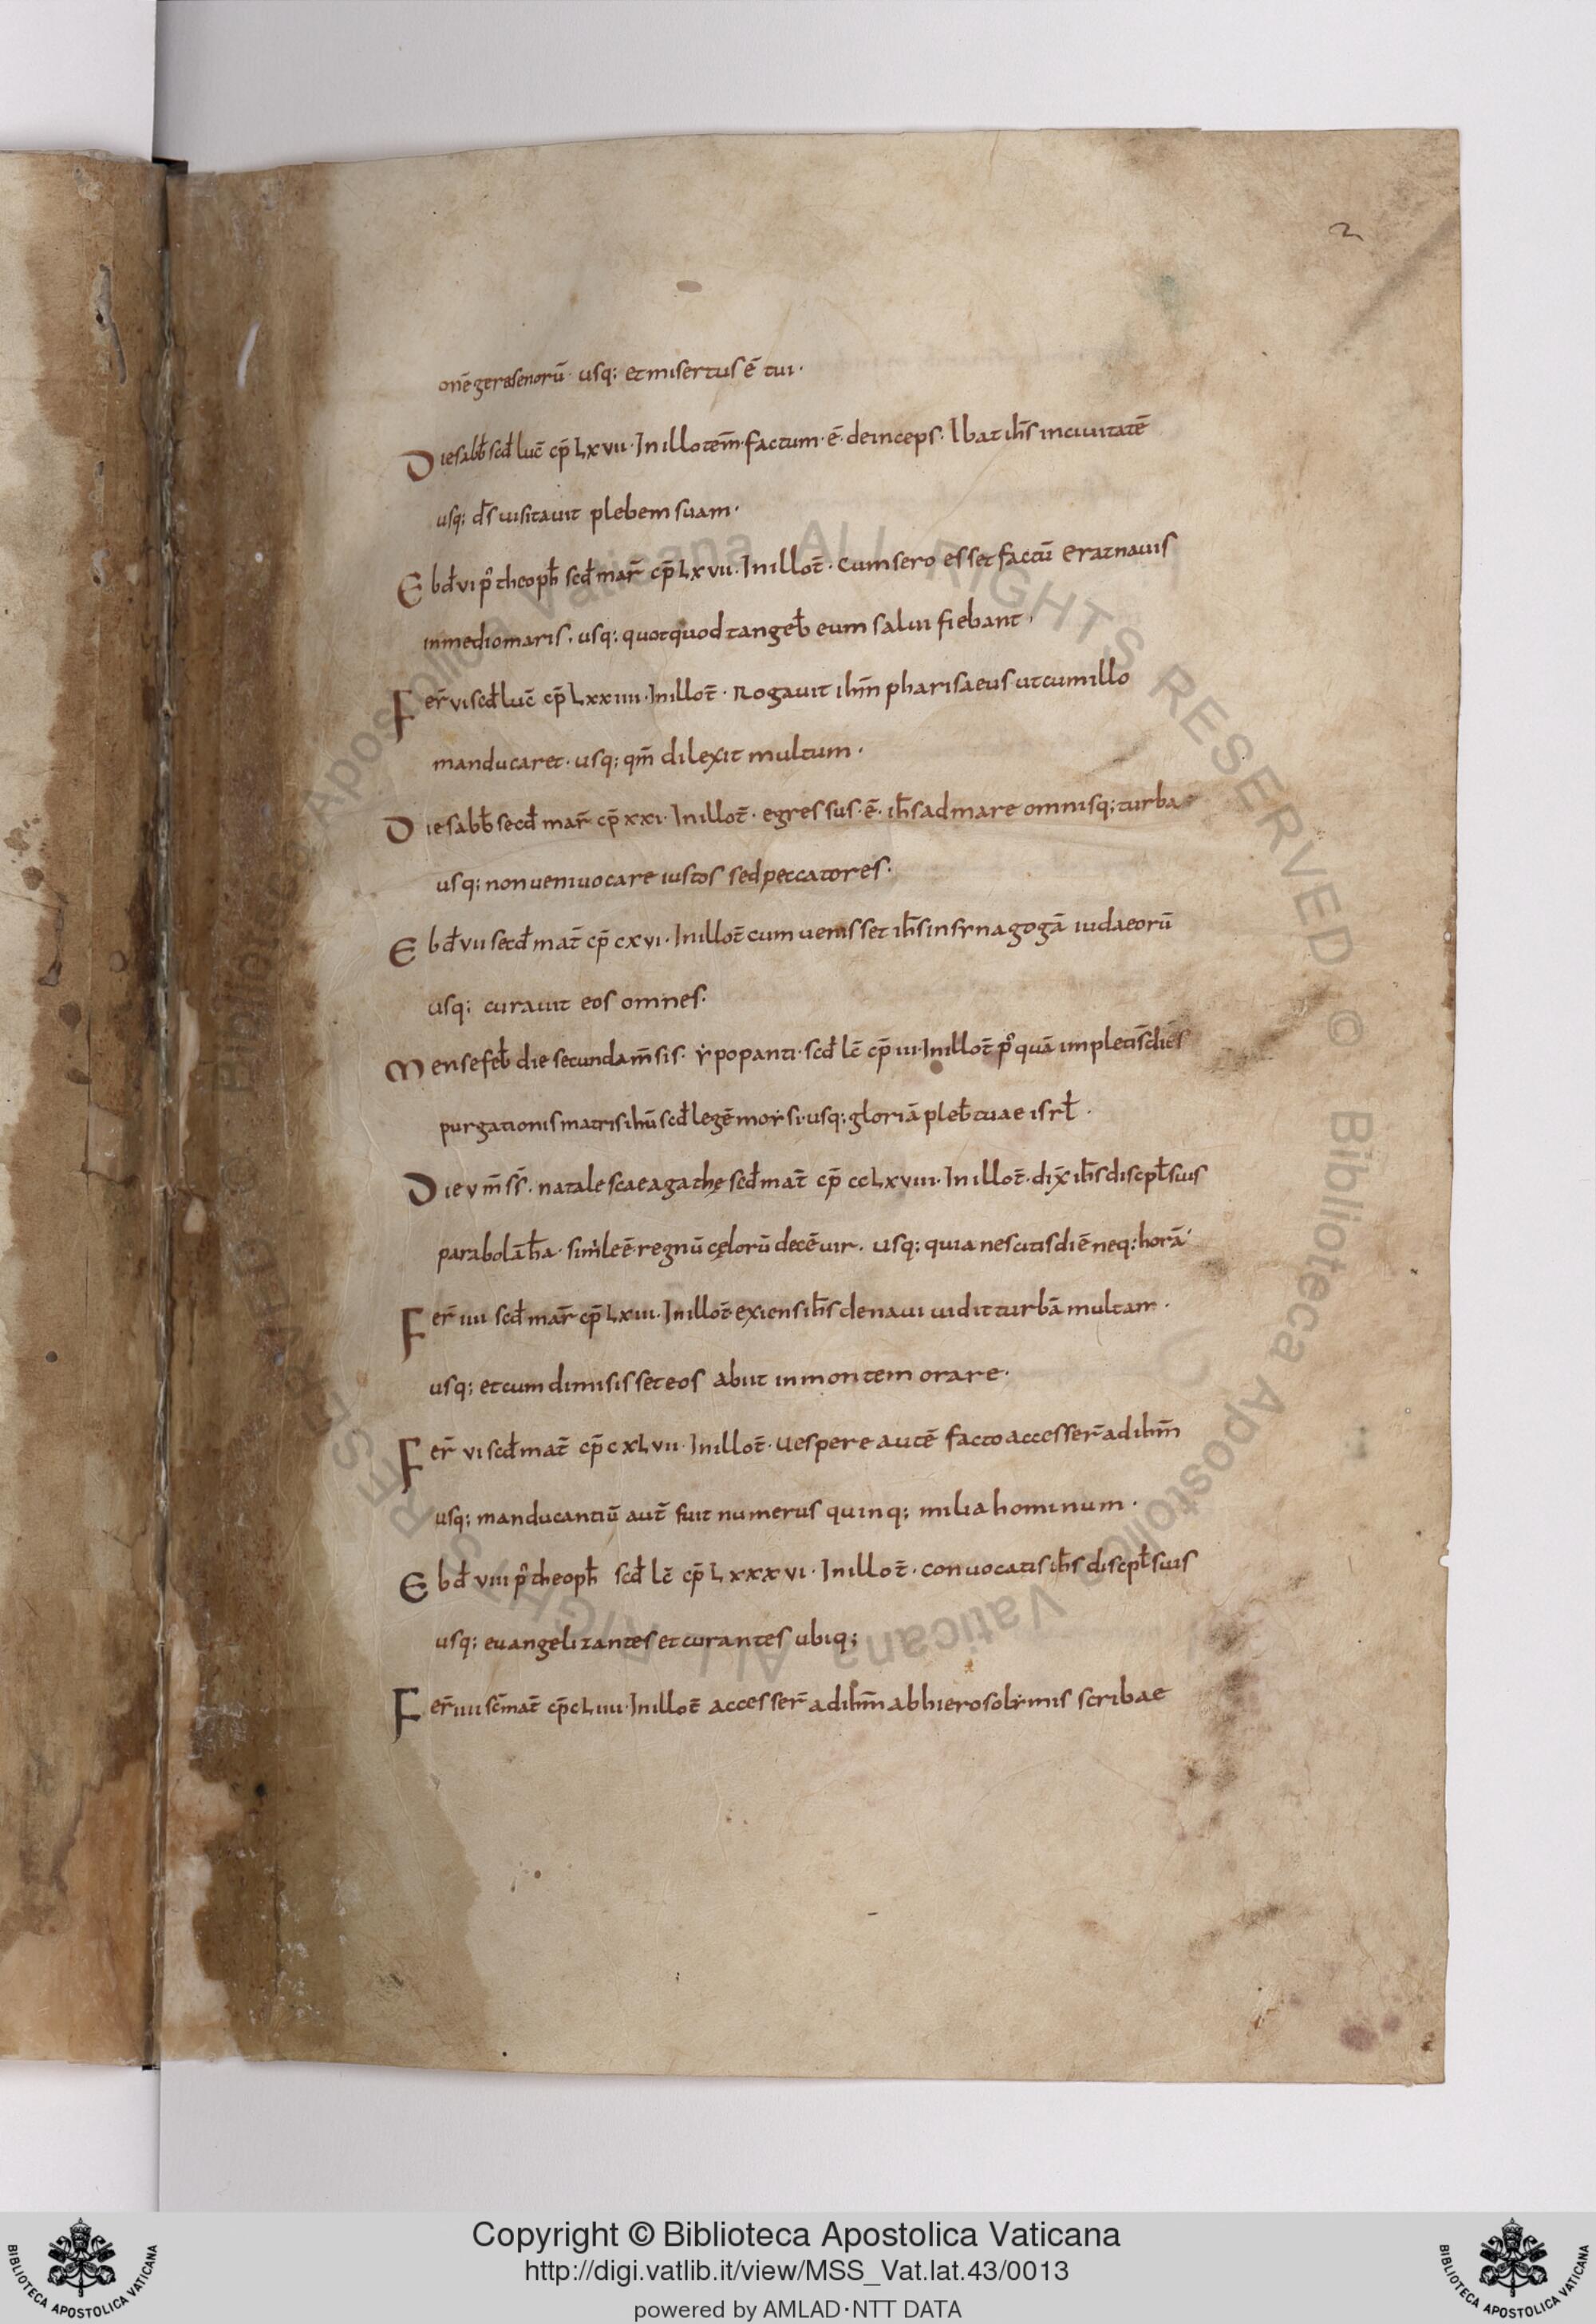 2
onē gerasenorū · usq; et misertus ē tui ·
Die sabb̄ scd̄ luc̄ cp̄ Lxvii · In illo tem̄ · factum · ē · deinceps · Ibat ih̄s in ciuitatē
usq; d̄s uisitauit plebem suam ·
Ebd̄ vi p̊ theoph̄ scd̄ mar̄ cp̄ Lxvii · In illo t̄ · cum sero esset factū erat nauis
in medio maris · usq; quotquod tangeb̄ eum salui fiebant ·
Fer̄ vi scd̄ luc̄ cp̄ Lxxiiii · In illo t̄ · Rogauit ihm̄ pharisaeus ut cum illo
manducaret · usq; qm̄ dilexit multum ·
Die sabb̄ secd̄ mar̄ cp̄ xxi · In illo t̄ · egressus · ē · ih̄s ad mare omnisq; turba
usq; non ueni uocare iustos sed peccatores ·
Ebd̄ vii secd̄ mat̄ cp̄ cxvi · In illo t̄ cum uenisset ih̄s in synagogā iudaeorū
usq; curauit eos omnes ·
Mense feb̄ die secunda m̄sis · ẏpopanti · scd̄ lc̄ cp̄ iii · In illo t̄ p̊quā impleti s̄ dies
purgationis matris ihū scd̄ legē moẏsi · usq; gloriā pleb̄ tuae isrl̄ ·
Die v m̄ s̄s · natale scae agathę scd̄ mat̄ cp̄ ccLxviii · In illo t̄ · dix̄ ih̄s discipl̄ suis
parabolā h̄a · simile ē regnū cęlorū decē uir · usq; quia nescitis diē neq; horā
Fer̄ iiii scd̄ mar̄ cp̄ Lxiii · In illo t̄ exiens ih̄s de naui uidit turbā multam ·
usq; et cum dimisisset eos abiit in montem orare ·
Fer̄ vi scd̄ mat̄ cp̄ cxLvii · In illo t̄ · uespere autē facto accesser̄ ad ihm̄
usq; manducantiū aut̄ fuit numerus quinq; milia hominum ·
Ebd̄ viii p̊ theoph̄ scd̄ lc̄ cp̄ Lxxxvi · In illo t̄ · conuocatis ih̄s discipl̄ suis
usq; euangelizantes et curantes ubiq;
Fer̄ iiii sc̄ mat̄ cp̄ cLiiii · In illo t̄ accesser̄ ad ihm̄ ab hierosolẏmis scribae
Copyright © Biblioteca Apostolica Vaticana
http://digi.vatlib.it/view/MSS_Vat.lat.43/0013
powered by AMLAD·NTT DATA
BIBLIOTECA APOSTOLICA VATICANA
BIBLIOTECA APOSTOLICA VATICANA